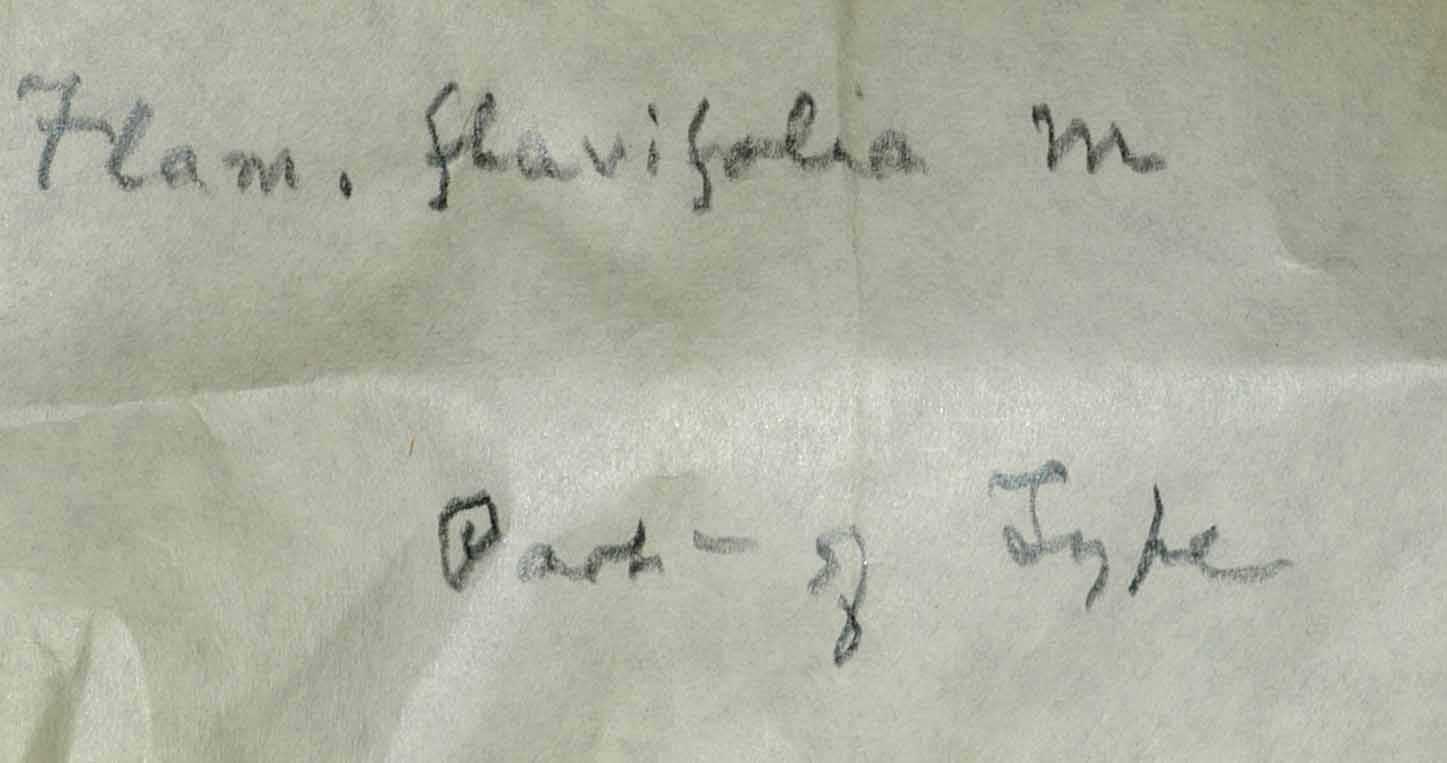 Flam. flavifolia m
Part - of Type